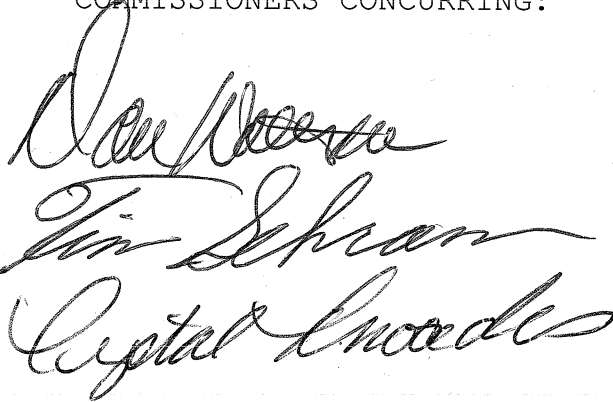 COMMISSIONERS CONCURRING:
Dan
Tim Schram
Crystal Rhoades